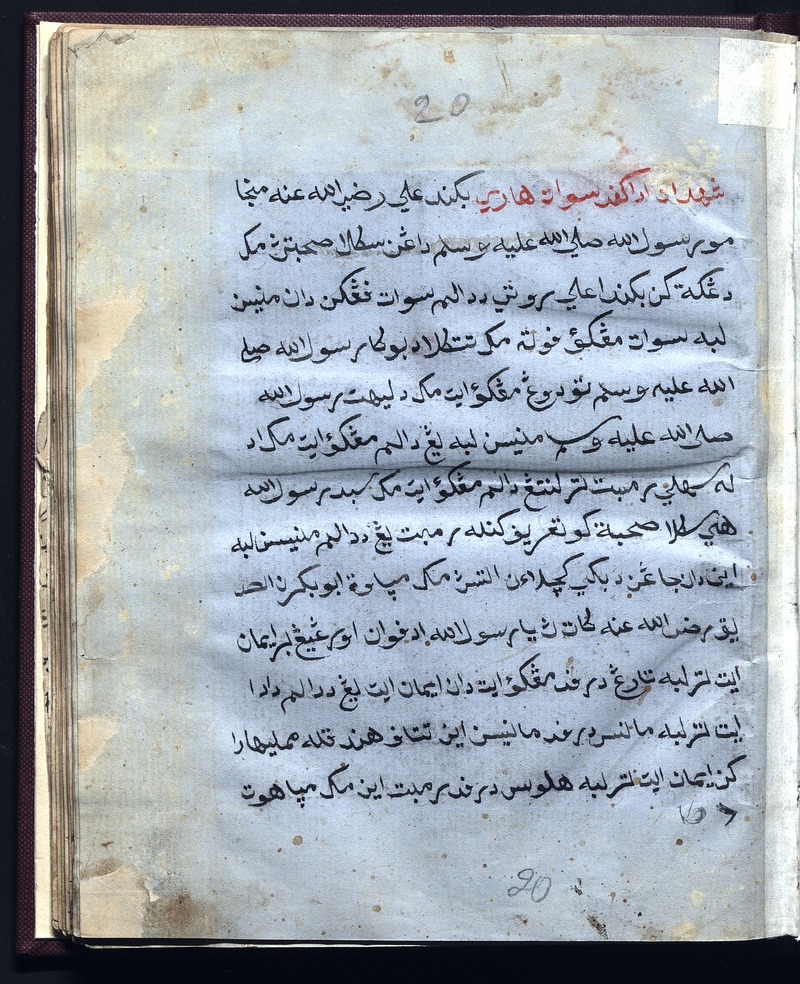 20
شهدان اداكفد سوات هاري بكند علي رضي الله عنه منجا
مو رسول الله صلى الله عليه وسلم داڠن سكلا صحبتن مك
دڠكة كن بكندا علي سروثي ددالم سوات ڤڠݢن دان منيسن
لبه سوات مڠكؤ ڤوته مك تتكلا دبوكا رسول الله صلى
الله عليه وسلم تودوڠ مڠكؤ ايت مك دليهت رسول الله
صلى الله عليه وسلم منيسن لبه يڠ دالم مڠكؤ ايت مك اد
له سهلي رمبت ترلنتڠ دالم مڠكؤ ايت مك سبد رسول الله
هي سكلا صحبة كو تعريفكنله رمبت يڠ ددالم منيسن لبه
اين دان جاڠن دبكي كچلاءن التسن مك مپاوة ابو بكرن الصد
يق رضي الله عنه كات ث يا رسول الله ادڤون اورڠ يڠ برايمان
ايت لتر لبه تارڠ درفد مڠكؤ ايت دان ايمان ايت يڠ ددالم دادا
ايت لتر لبه مانس درفد مانيسن اين تتاڤ هندقله مميلهارا
كن ايمان ايت لتر لبه هلوس درفد رمبت اين مك مپاهوت
20